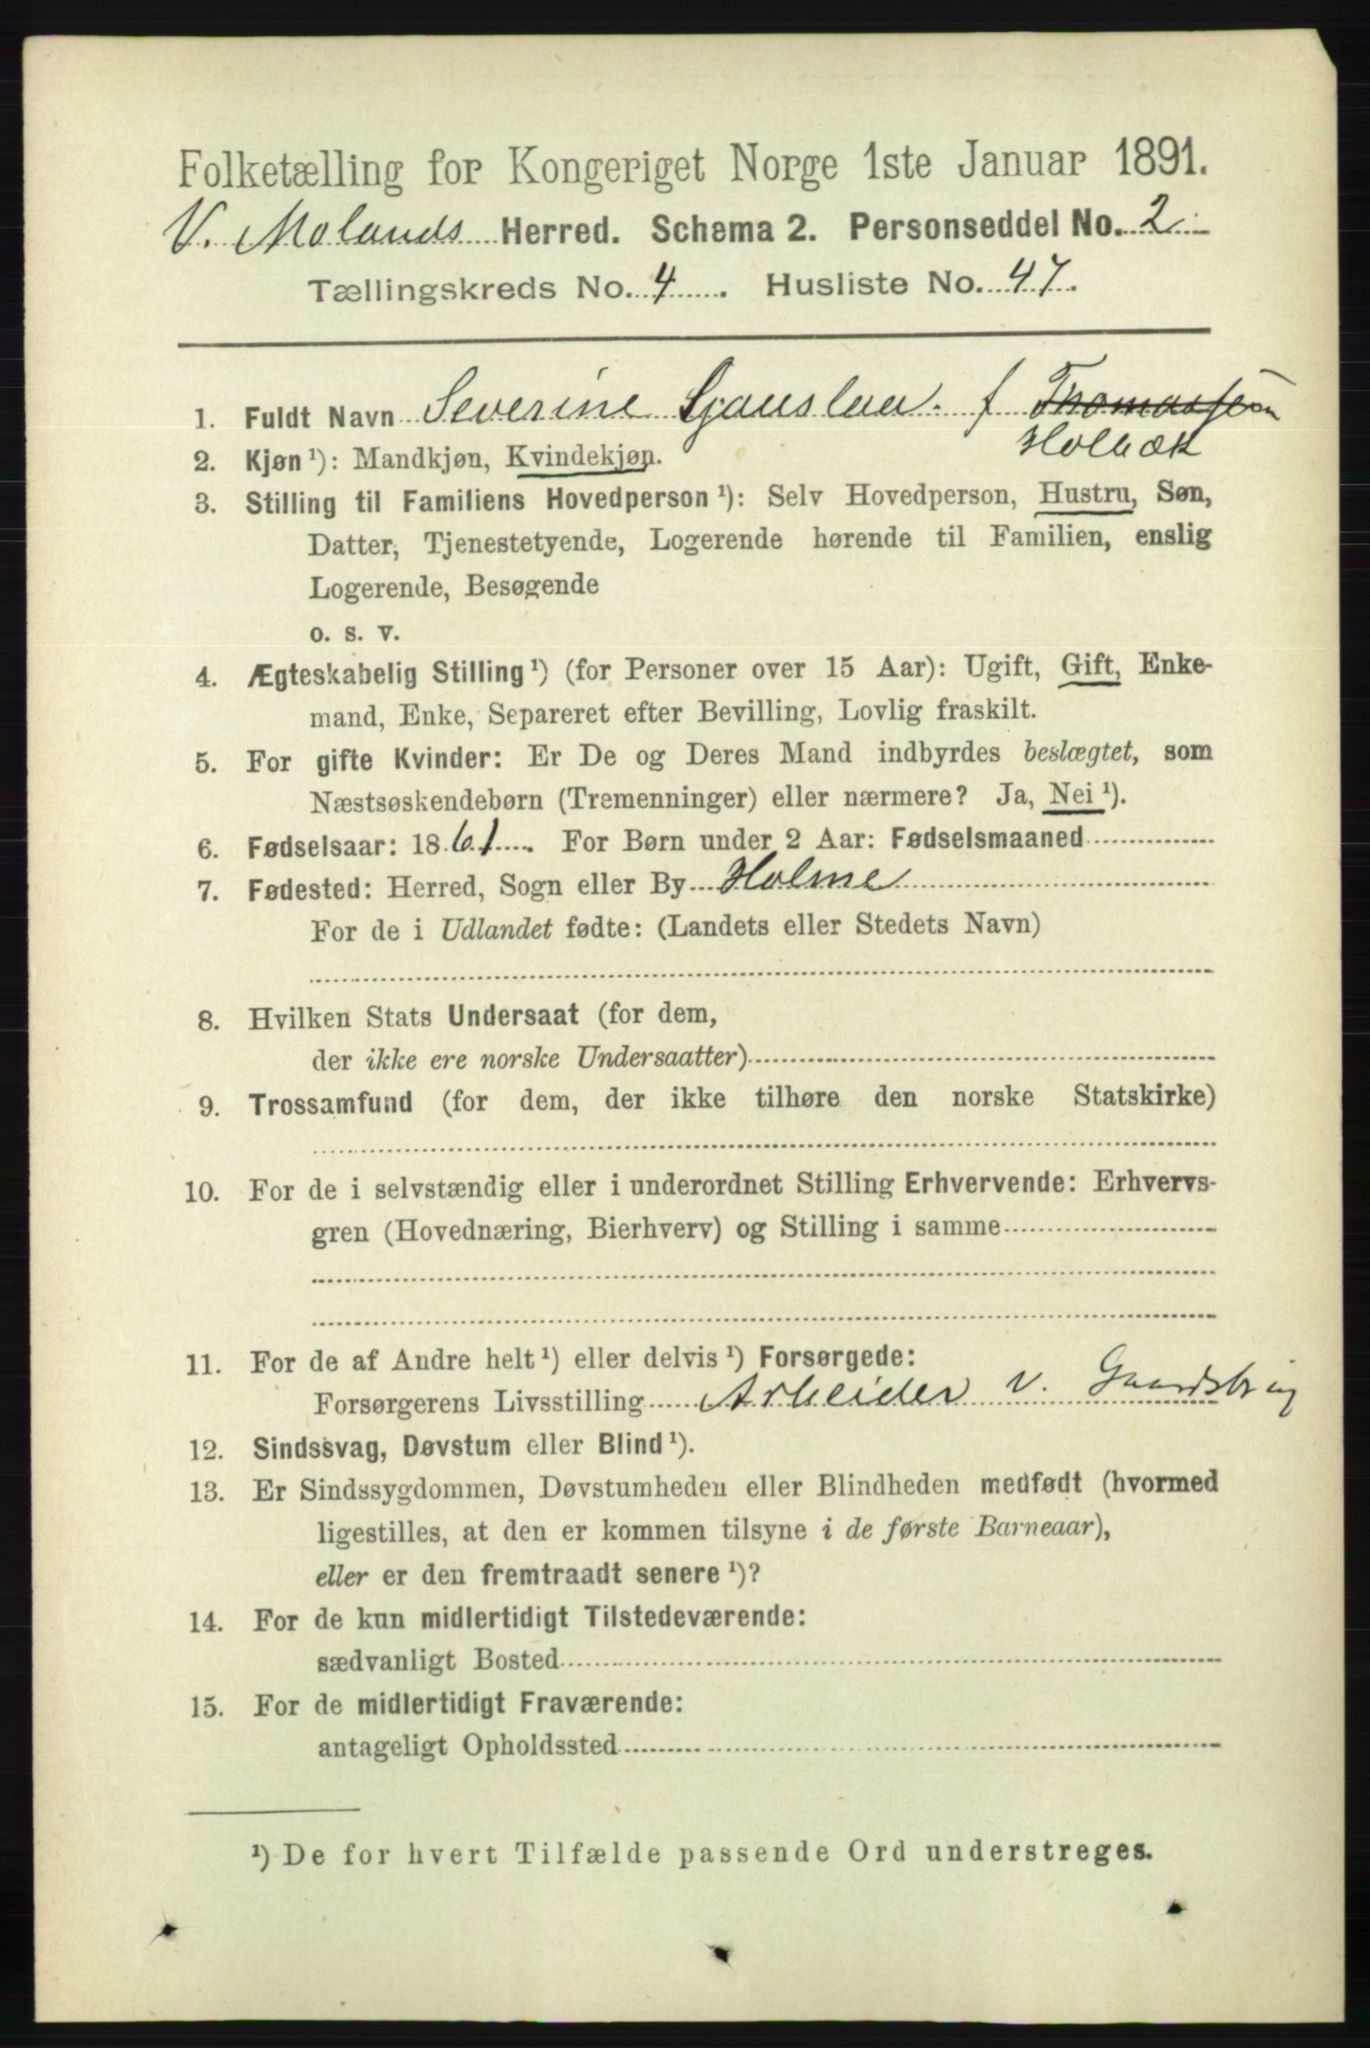 Folketælling for Kongeriget Norge 1ste Januar 1891.
V. Molands Herred. Schema 2. Personseddel No. 2
Tællingskreds No. 4. Husliste No. 47.
1. Fuldt Navn Severine f Thomassen
Holbæk
2. Kjøn ¹): Mandkjøn, Kvindekjøn.
3. Stilling til Familiens Hovedperson ¹): Selv Hovedperson, Hustru, Søn,
Datter, Tjenestetyende, Logerende hørende til Familien, enslig
Logerende, Besøgende
o. s. v.
4. Ægteskabelig Stilling ¹) (for Personer over 15 Aar): Ugift, Gift, Enke-
mand, Enke, Separeret efter Bevilling, Lovlig fraskilt.
5. For gifte Kvinder: Er De og Deres Mand indbyrdes beslægtet, som
Næstsøskendebørn (Tremenninger) eller nærmere? Ja, Nei ¹).
6. Fødselsaar: 1861. For Børn under 2 Aar: Fødselsmaaned
7. Fødested: Herred, Sogn eller By Holme
For de i Udlandet fødte: (Landets eller Stedets Navn)
8. Hvilken Stats Undersaat (for dem,
der ikke ere norske Undersaatter)
9. Trossamfund (for dem, der ikke tilhøre den norske Statskirke)
10. For de i selvstændig eller i underordnet Stilling Erhvervende: Erhvervs-
gren (Hovednæring, Bierhverv) og Stilling i samme
11. For de af Andre helt ¹) eller delvis ¹) Forsørgede:
Forsørgerens Livsstilling Arbeider v. Gaardsbrug
12. Sindssvag, Døvstum eller Blind ¹).
13. Er Sindssygdommen, Døvstumheden eller Blindheden medfødt (hvormed
ligestilles, at den er kommen tilsyne i de første Barneaar),
eller er den fremtraadt senere ¹)?
14. For de kun midlertidigt Tilstedeværende:
sædvanligt Bosted
15. For de midlertidigt Fraværende:
antageligt Opholdssted
¹) De for hvert Tilfælde passende Ord understreges.